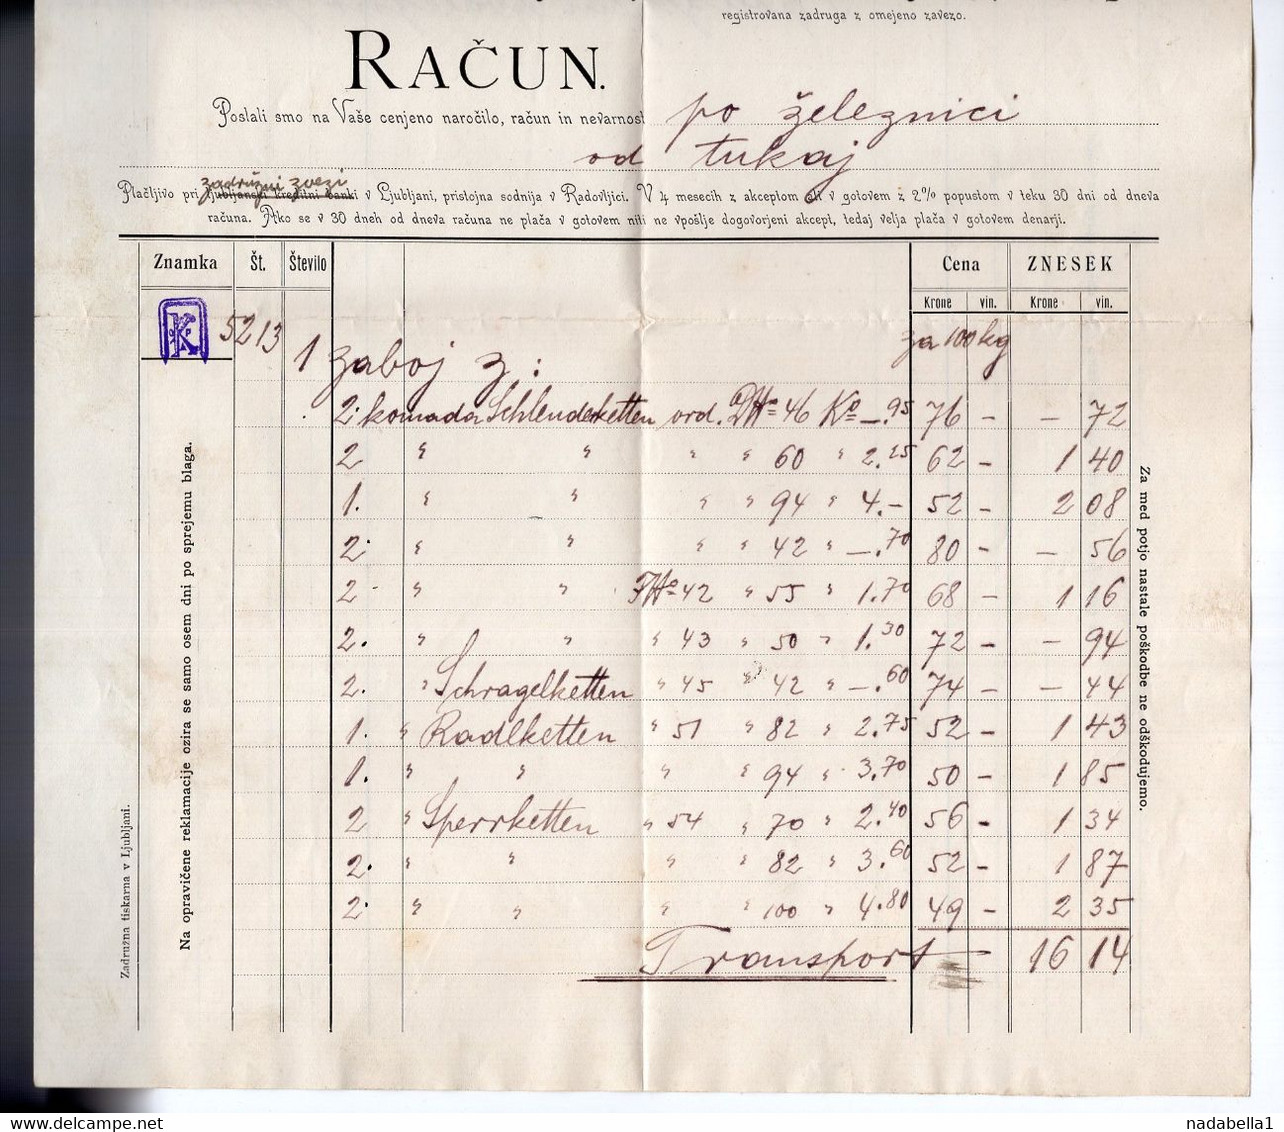 registrovana zadruga z omejeno zavezo.
RAČUN.
Poslali smo na Vaše cenjeno naročilo, račun in nevarnost po železnici
od tukaj
zadružni zvezi
Plačljivo pri Ljubljanski kreditni banki v Ljubljani, pristojna sodnija v Radovljici. V 4 mesecih z akceptom ali v gotovem z 2% popustom v teku 30 dni od dneva
računa. Ako se v 30 dneh od dneva računa ne plača v gotovem niti ne vpošlje dogovorjeni akcept, tedaj velja plača v gotovem denarji.
Znamka Št. Število Cena ZNESEK
Krone vin. Krone vin.
K 5213 za 100 kg
1 zaboj z:
2 komada Schlenderketten ord. DHo 46 Ko —.95 76 - — 72
2 " " " " 60 " 2.25 62 - 1 40
1. " " " " 94 " 4.- 52 - 2 08
2 " " " " 42 " —.70 80 - — 56
2 " " FHo 42 " 55 " 1.70 68 - 1 16
2. " " " 43 " 50 " 1.30 72 - — 94
2. " Schragelketten " 45 " 42 " —.60 74 - — 44
1. " Radlketten " 51 " 82 " 2.75 52 - 1 43
1. " " " " 94 " 3.70 50 - 1 85
2 " Sperrketten " 54 " 70 " 2.40 56 - 1 34
2. " " " " 82 " 3.60 52 - 1 87
2 " " " " 100 " 4.80 49 - 2 35
Transport 16 14
Na opravičene reklamacije ozira se samo osem dni po sprejemu blaga.
Zadružna tiskarna v Ljubljani.
Za med potjo nastale poškodbe ne odškodujemo.
delcampe.net
nadabella1